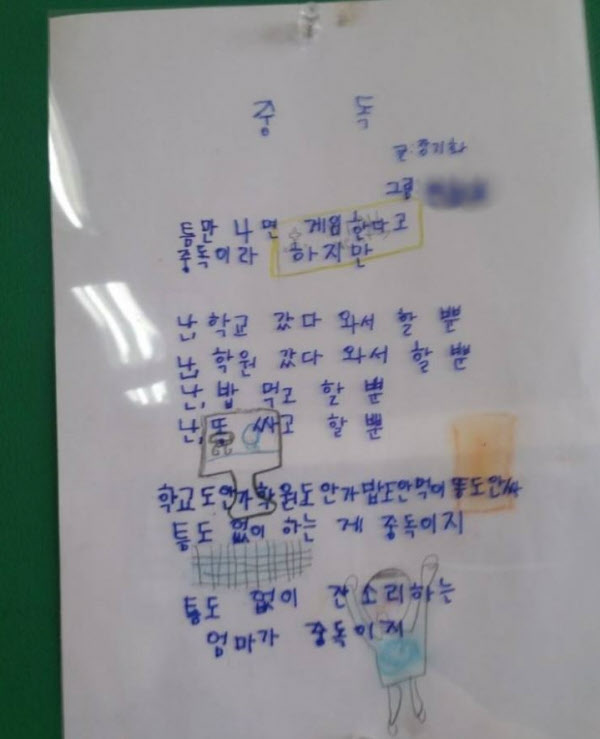 중 독
글: 중기화
그림
틈만 나면 게임한다고
중독이라 하지만
난, 학교 갔다 와서 할 뿐
난, 학원 갔다 와서 할 뿐
난, 밥 먹고 할 뿐
난, 똥 싸고 할 뿐
학교도안가학원도안가밥도안먹어똥도안싸
틈도 없이 하는 게 중독이지
틈도 없이 잔소리하는
엄마가 중독이지